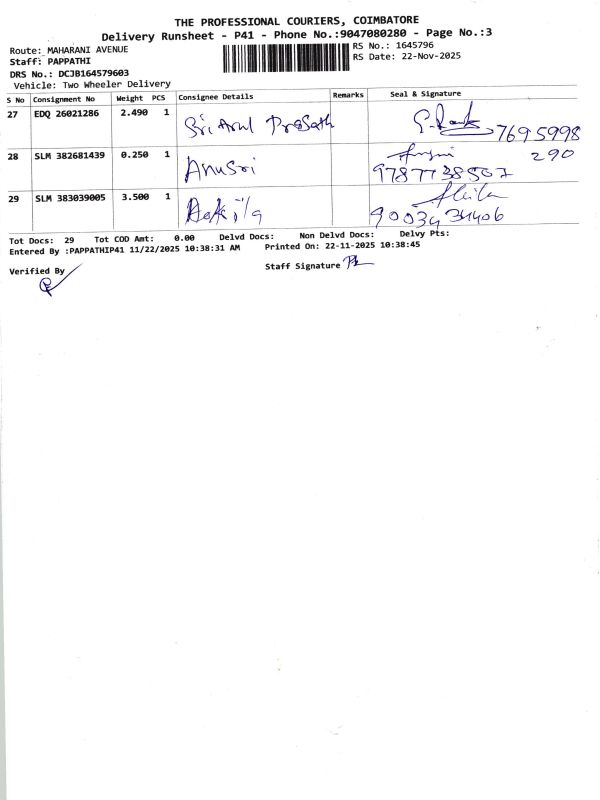 THE PROFESSIONAL COURIERS, COIMBATORE
Delivery Runsheet - P41 - Phone No.:9047080280 - Page No.:3
Route: MAHARANI AVENUE
RS No.: 1645796
Staff: PAPPATHI
RS Date: 22-Nov-2025
DRS No.: DCJB164579603
Vehicle: Two Wheeler Delivery
S No Consignment No Weight PCS Consignee Details Remarks Seal & Signature
27 EDQ 26021286 2.490 1 Sri Arul Prasath 7695998
290
28 SLM 382681439 0.250 1 Anusri
9787738507
29 SLM 383039005 3.500 1
9003434406
Tot Docs: 29 Tot COD Amt: 0.00 Delvd Docs: Non Delvd Docs: Delvy Pts:
Entered By :PAPPATHIP41 11/22/2025 10:38:31 AM Printed On: 22-11-2025 10:38:45
Verified By
Staff Signature